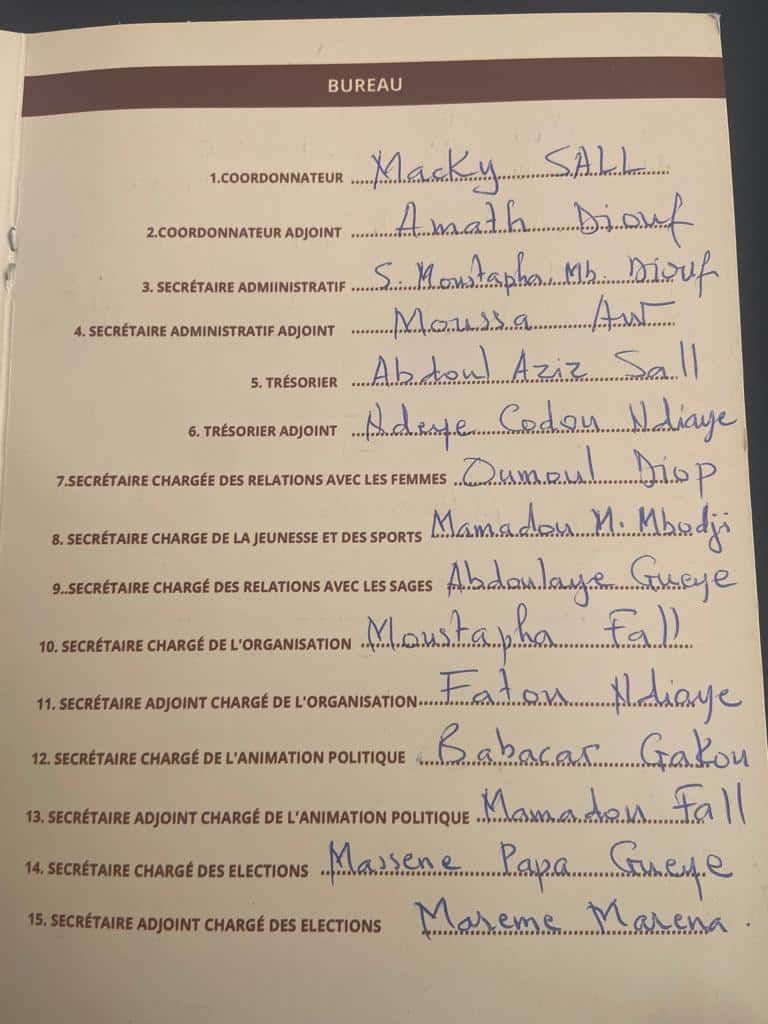 BUREAU
1.COORDONNATEUR Macky SALL
2.COORDONNATEUR ADJOINT Amath Diouf
3. SECRÉTAIRE ADMIINISTRATIF S. Moustapha Mb. Diouf
4. SECRÉTAIRE ADMINISTRATIF ADJOINT Moussa AW
5. TRÉSORIER Abdoul Aziz Sall
6. TRÉSORIER ADJOINT Ndeye Codou Ndiaye
7.SECRÉTAIRE CHARGÉE DES RELATIONS AVEC LES FEMMES Oumoul Diop
8. SECRÉTAIRE CHARGE DE LA JEUNESSE ET DES SPORTS Mamadou M. Mbodji
9..SECRÉTAIRE CHARGÉ DES RELATIONS AVEC LES SAGES Abdoulaye Gueye
10. SECRÉTAIRE CHARGÉ DE L'ORGANISATION Moustapha Fall
11. SECRÉTAIRE ADJOINT CHARGÉ DE L'ORGANISATION Fatou Ndiaye
12. SECRÉTAIRE CHARGÉ DE L'ANIMATION POLITIQUE Babacar Gakou
13. SECRÉTAIRE ADJOINT CHARGÉ DE L'ANIMATION POLITIQUE Mamadou Fall
14. SECRÉTAIRE CHARGÉ DES ELECTIONS Massene Papa Gueye
15. SECRÉTAIRE ADJOINT CHARGÉ DES ELECTIONS Mareme Marena.